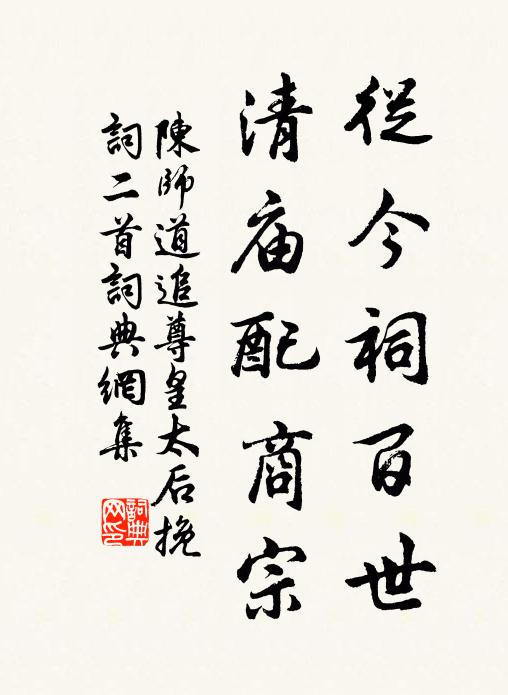 從今祠百世
清庙配商宗
陳師道追尊皇太后挽
詞二首詞典網集
詞典
网印